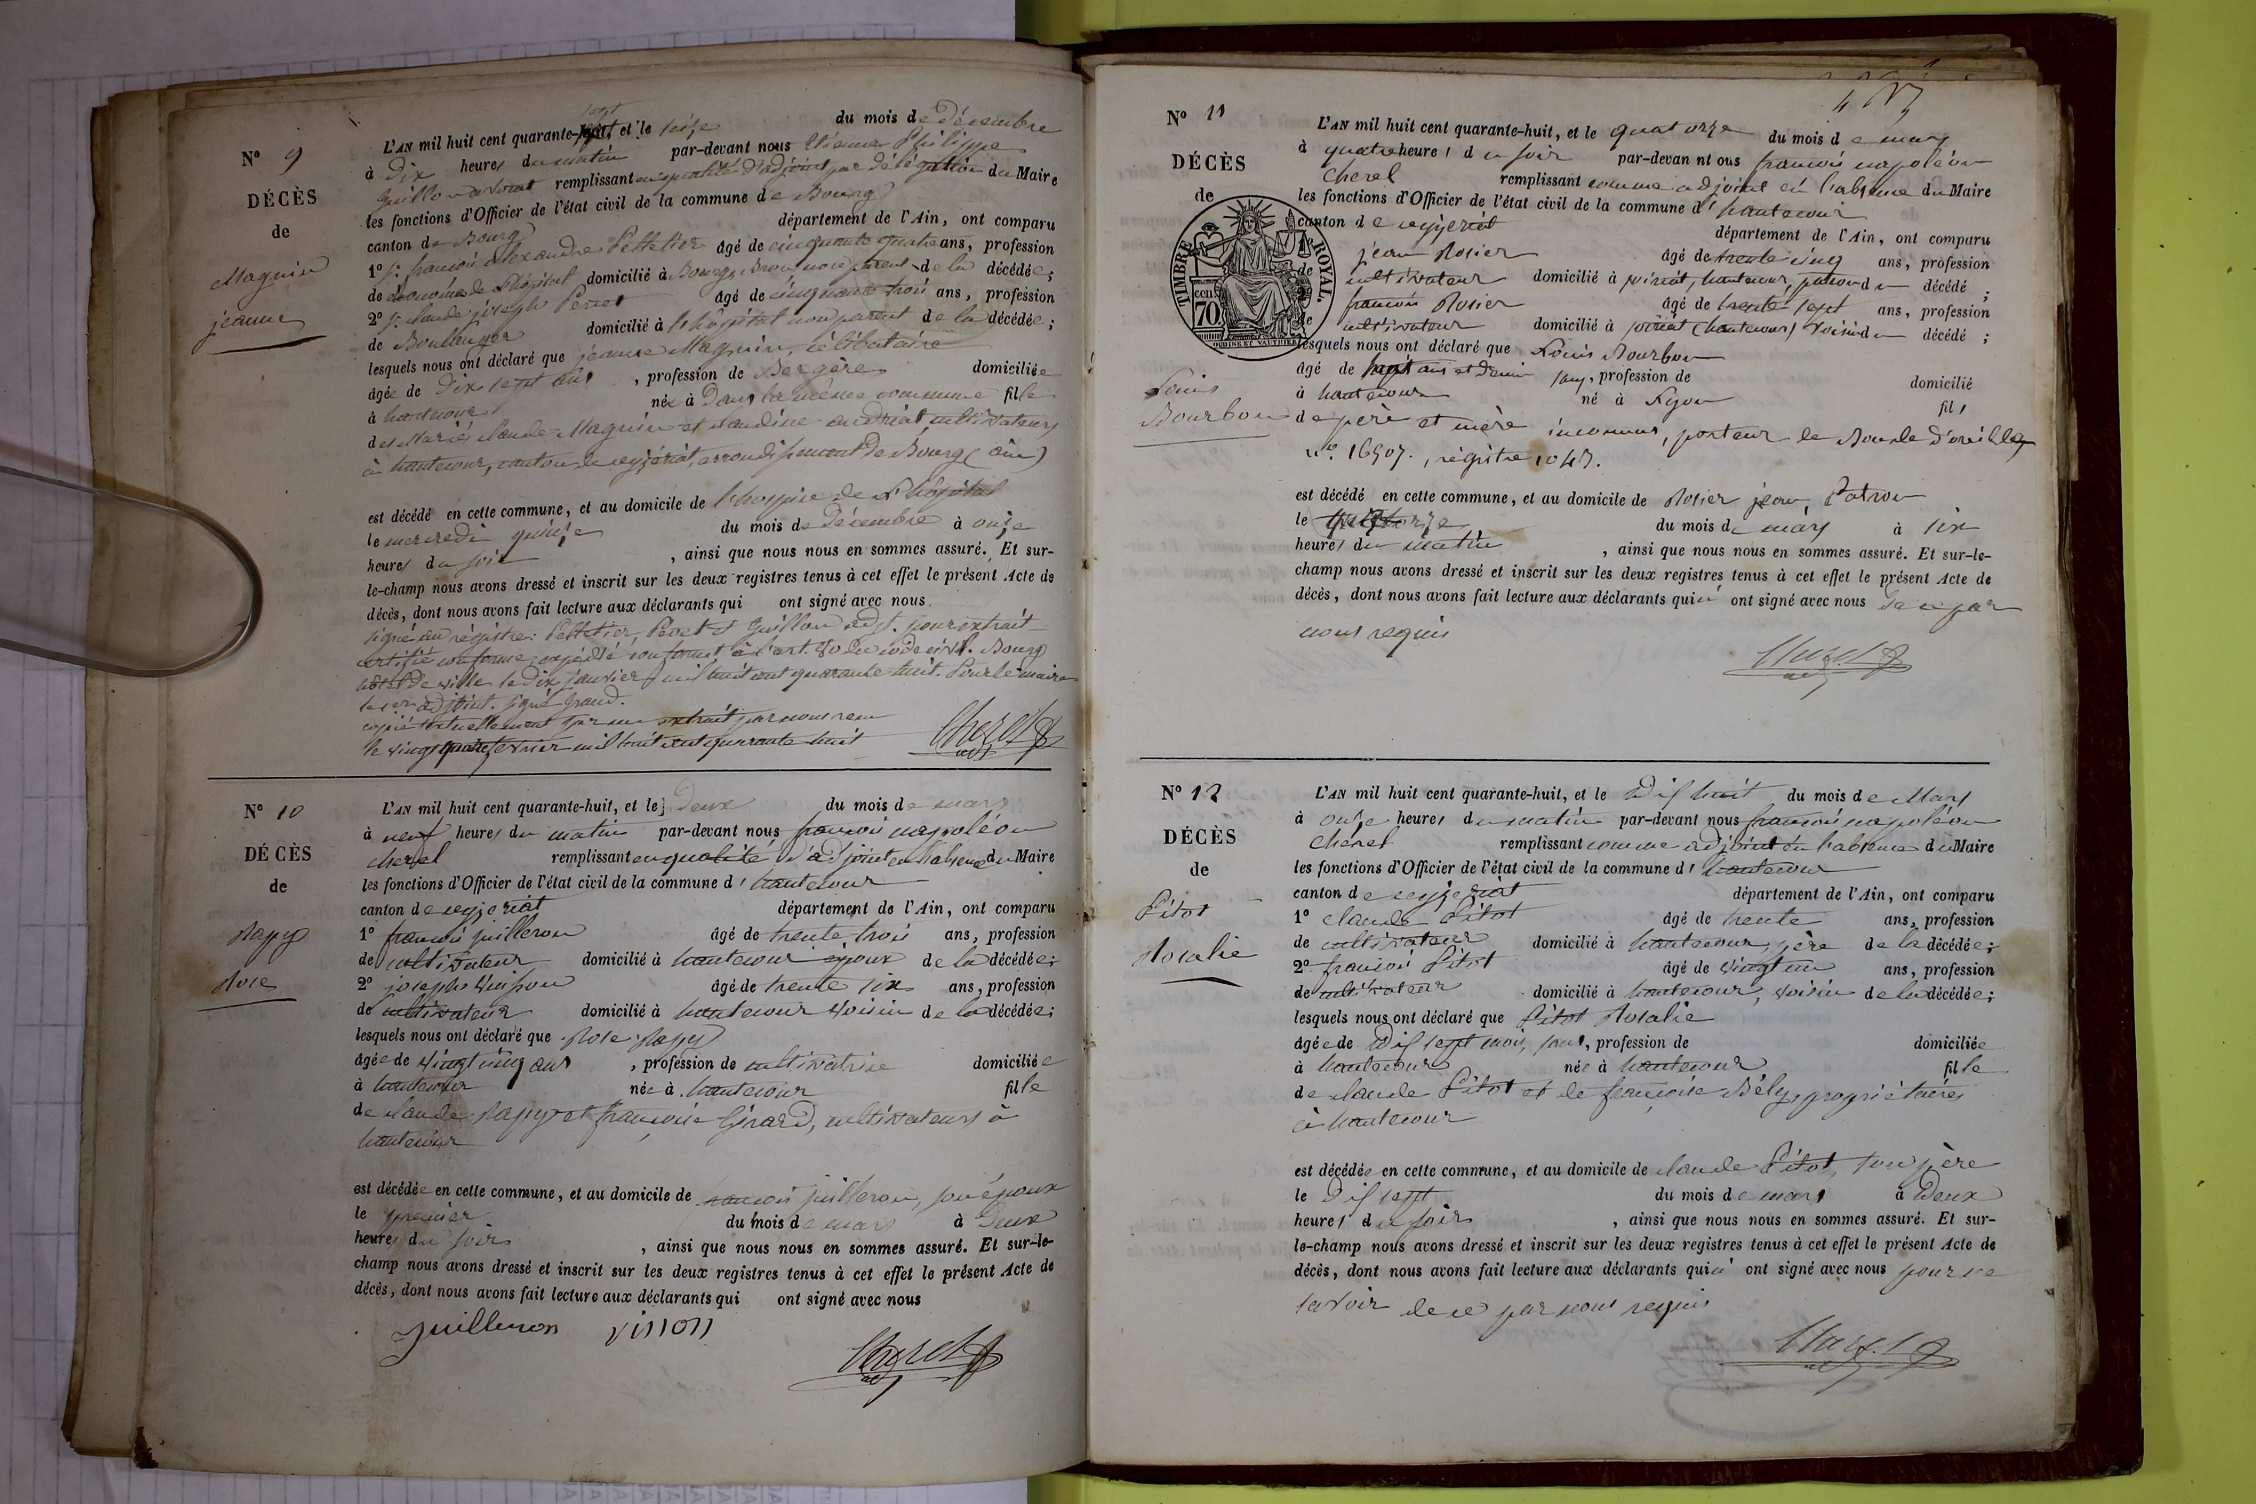 N° 9
DÉCÈS
de
Magnin
jeanne
L'AN mil huit cent quarante-sept et le seize du mois de Décembre
à Dix heures du matin par-devant nous Etienne Philippe
Guillon avocat remplissant en qualité d'adjoint par délégation du Maire
les fonctions d'Officier de l'état civil de la commune de Bourg
canton de Bourg département de l'Ain, ont comparu
1° françois alexandre Pelletier âgé de cinquante quatre ans, profession
de économe de l'hôpital domicilié à Bourg, non parent de la décédée;
2° claude joseph Perret âgé de cinquante trois ans, profession
de Boulanger domicilié à l'hôpital non parent de la décédée;
lesquels nous ont déclaré que jeanne Magnin, célibataire
âgée de Dix sept ans, profession de Bergère domiciliée
à hautecour née à Dans la même commune fille
des Mariés claude Magnin et claudine cultivateurs
à hautecour, canton de ceyzériat, arrondissement de Bourg (ain)
est décédé en cette commune, et au domicile de l'hospice de l'hôpital
le mercredi quinze du mois de Décembre à onze
heures du soir, ainsi que nous nous en sommes assuré. Et sur-
le-champ nous avons dressé et inscrit sur les deux registres tenus à cet effet le présent Acte de
décès, dont nous avons fait lecture aux déclarants qui ont signé avec nous.
signé au régistre: Pelletier, Peret et Guillon adjt. pour extrait
certifié conforme, expédié conformt à l'art. 80 du code civil. Bourg
hôtel de ville le dix janvier mil huit cent quarante huit. Pour le maire
le 1er adjoint. signé Graud.
copié textuellement sur un extrait par nous
le vingt quatre fevrier mil huit cent quarante huit
Cherel
adj
N° 10
DÉCÈS
de
Rapy
Rose
L'AN mil huit cent quarante-huit, et le Deux du mois de mars
à neuf heures du matin par-devant nous françois napoléon
cherel remplissant en qualité d'adjoint en l'absence du Maire
les fonctions d'Officier de l'état civil de la commune d'hautecour
canton de ceyzeriat département de l'Ain, ont comparu
1° françois juilleron âgé de trente trois ans, profession
de cultivateur domicilié à hautecour époux de la décédée;
2° joseph Vuisson âgé de trente six ans, profession
de cultivateur domicilié à hautecour voisin de la décédée;
lesquels nous ont déclaré que Rose Rapy
âgée de vingt cinq ans, profession de cultivatrice domiciliée
à hautecour née à hautecour fille
de claude Rapy et françoise Girard, cultivateurs à
hautecour
est décédée en cette commune, et au domicile de francois juilleron, son époux
le premier du mois de mars à Deux
heures du soir, ainsi que nous nous en sommes assuré. Et sur-le-
champ nous avons dressé et inscrit sur les deux registres tenus à cet effet le présent Acte de
décès, dont nous avons fait lecture aux déclarants qui ont signé avec nous
juilleron visson
Cherel
adj
N° 11
DÉCÈS
de
TIMBRE ROYAL.
cen. 70
Louis
Bourbon
L'AN mil huit cent quarante-huit, et le quatorze du mois de mars
à quatre heures du soir par-devant nous françois napoléon
Cherel remplissant comme adjoint en l'absence du Maire
les fonctions d'Officier de l'état civil de la commune d'hautecour
canton de ceyzeriat département de l'Ain, ont comparu
jean Rosier âgé de trente cinq ans, profession
de cultivateur domicilié à poiriat, hautecour, patron du décédé;
françois Rosier âgé de trente sept ans, profession
de cultivateur domicilié à poiriat (hautecour) voisin du décédé;
lesquels nous ont déclaré que Louis Bourbon
âgé de sept ans et demi sans, profession de domicilié
à hautecour né à Lyon fils
de père et mère inconnus, porteur de Boucle d'oreilles
n° 16507., régistre 1043.
est décédé en cette commune, et au domicile de Rosier jean, Patron
le quatorze du mois de mars à six
heures du matin, ainsi que nous nous en sommes assuré. Et sur-le-
champ nous avons dressé et inscrit sur les deux registres tenus à cet effet le présent Acte de
décès, dont nous avons fait lecture aux déclarants qui n' ont signé avec nous de ce par
nous requis
Cherel
adj
N° 12
DÉCÈS
de
Pitot
Rosalie
L'AN mil huit cent quarante-huit, et le Dix huit du mois de Mars
à onze heures du matin par-devant nous françois napoléon
Chérel remplissant comme adjoint en l'absence du Maire
les fonctions d'Officier de l'état civil de la commune d'hautecour
canton de ceyzeriat département de l'Ain, ont comparu
1° claude Pitot âgé de trente ans, profession
de cultivateur domicilié à hautecour, père de la décédée;
2° françois Pitot âgé de vingt un ans, profession
de cultivateur domicilié à hautecour, voisin de la décédée;
lesquels nous ont déclaré que Pitot Rosalie
âgée de Dix sept mois, sans, profession de domiciliée
à hautecour née à hautecour fille
de claude Pitot et de françoise Bély, propriétaires
à hautecour
est décédée en cette commune, et au domicile de claude Pitot, son père
le Dix sept du mois de mars à Deux
heures du soir, ainsi que nous nous en sommes assuré. Et sur-
le-champ nous avons dressé et inscrit sur les deux registres tenus à cet effet le présent Acte de
décès, dont nous avons fait lecture aux déclarants qui n' ont signé avec nous pour ne
savoir de ce par nous requis
Cherel
adj